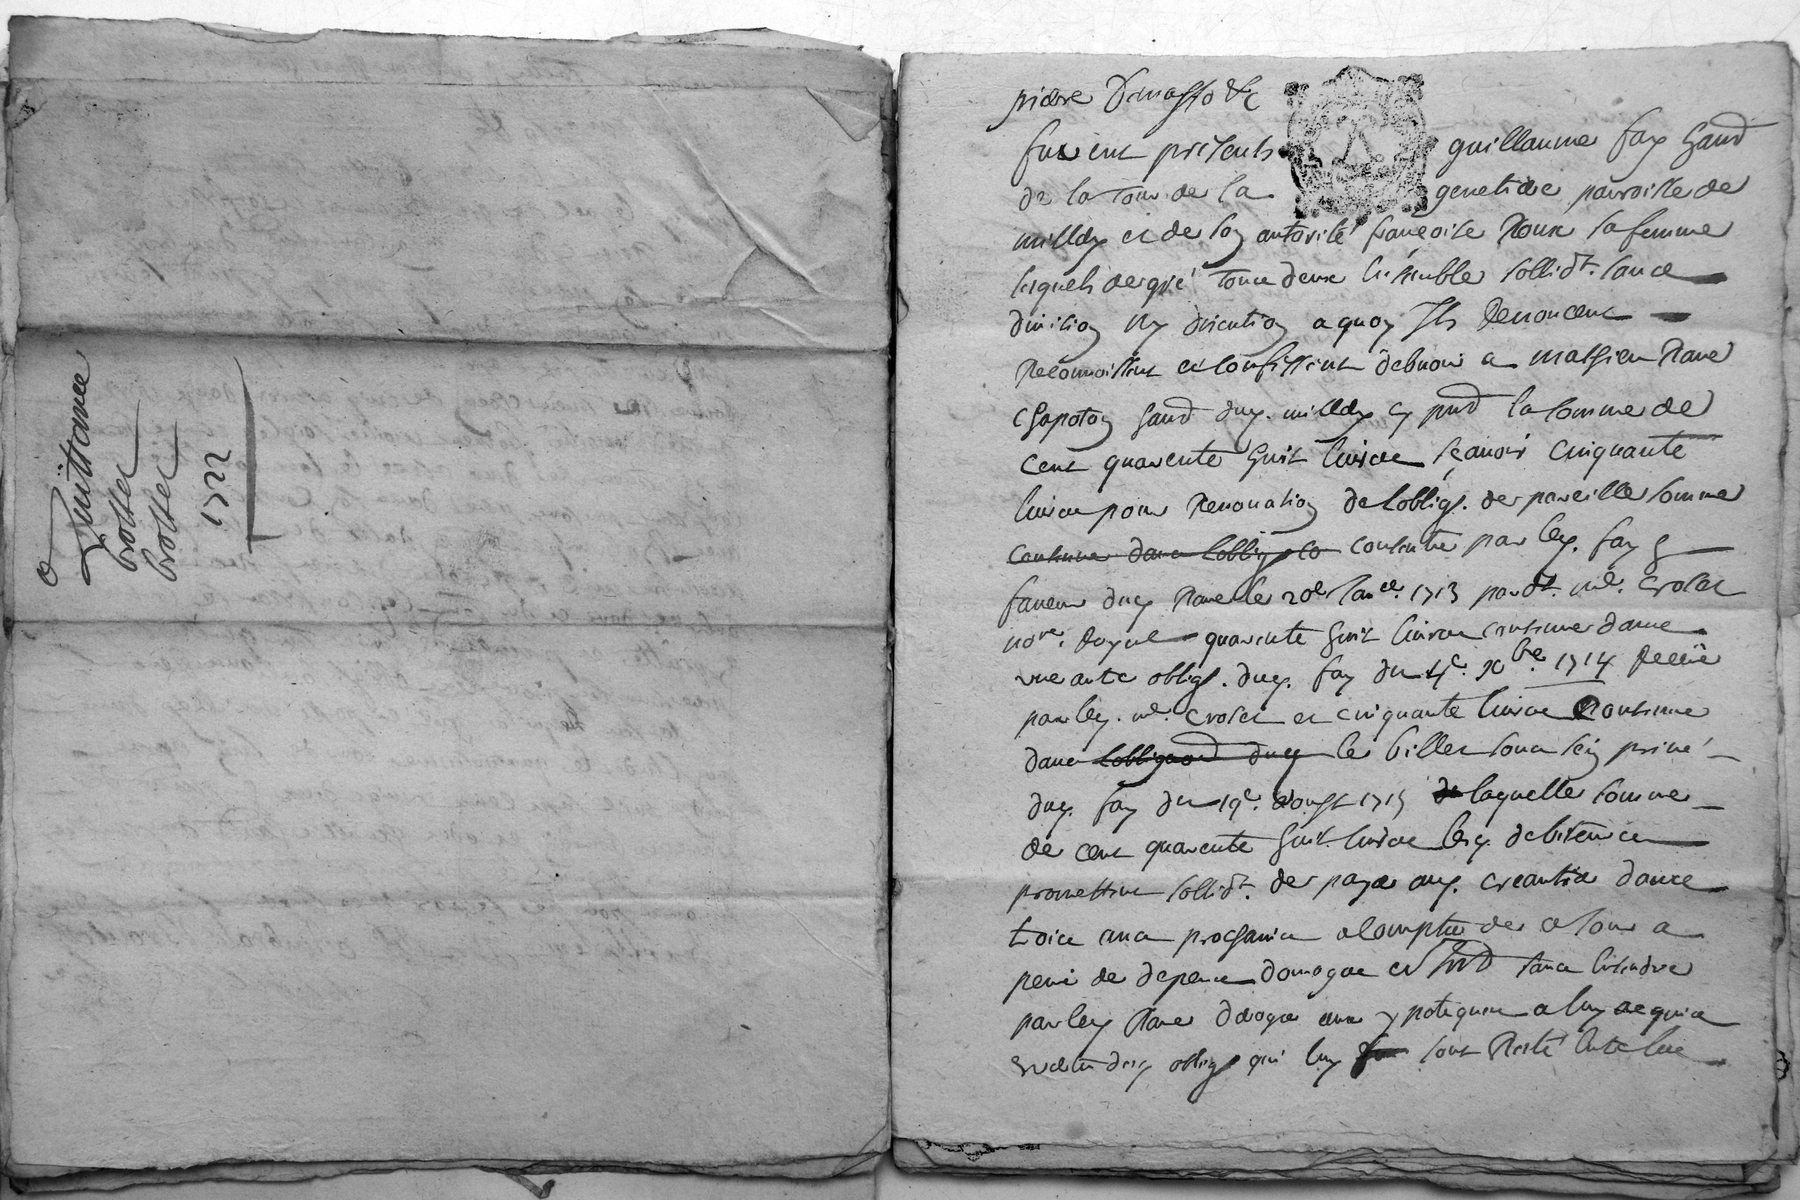 Quittance
brottet
brottet
1722
furent presents guillaume fay habd
de la tour de la genetiere parroisse de
milldy et de soy autorité françoise Roux sa femme
lesquels de gré tous deux ensemble sollidt. sance
division ny discution a quoy Ils Renoncent
Reconnoissent et confessent debuoir a mathieu Rane
chapotoy habd duy. milldy cy pnd la somme de
cent quarente huit livres sçauoir cinquante
livres pour Renouation de lobligo. de pareille somme
contenue dans lobligao contenue par ley. fay
faueur duey Rane le 20e 1713 pardt. me. crolet
nore. Royal quarente huit livres contenues dans
vne autre obligo. duey. fay du 4e. xbre 1714 Receue
par ley. me. crolet et cinquante livres Contenue
dans lobligaon duey le billet sous seig privé
duey. fay du 19e. aoust 1715 de laquelle somme
de cent quarente huit livres lesy. debiteurs
promettent sollidt. de payer auy. creantier dans
troics ans prochains a compter de ce jour a
peine de depens domages et Intd sans entendre
par ley Rane deroger aux ypoteques a luy acquis
en vertu desy obligo qui luy sont Resté